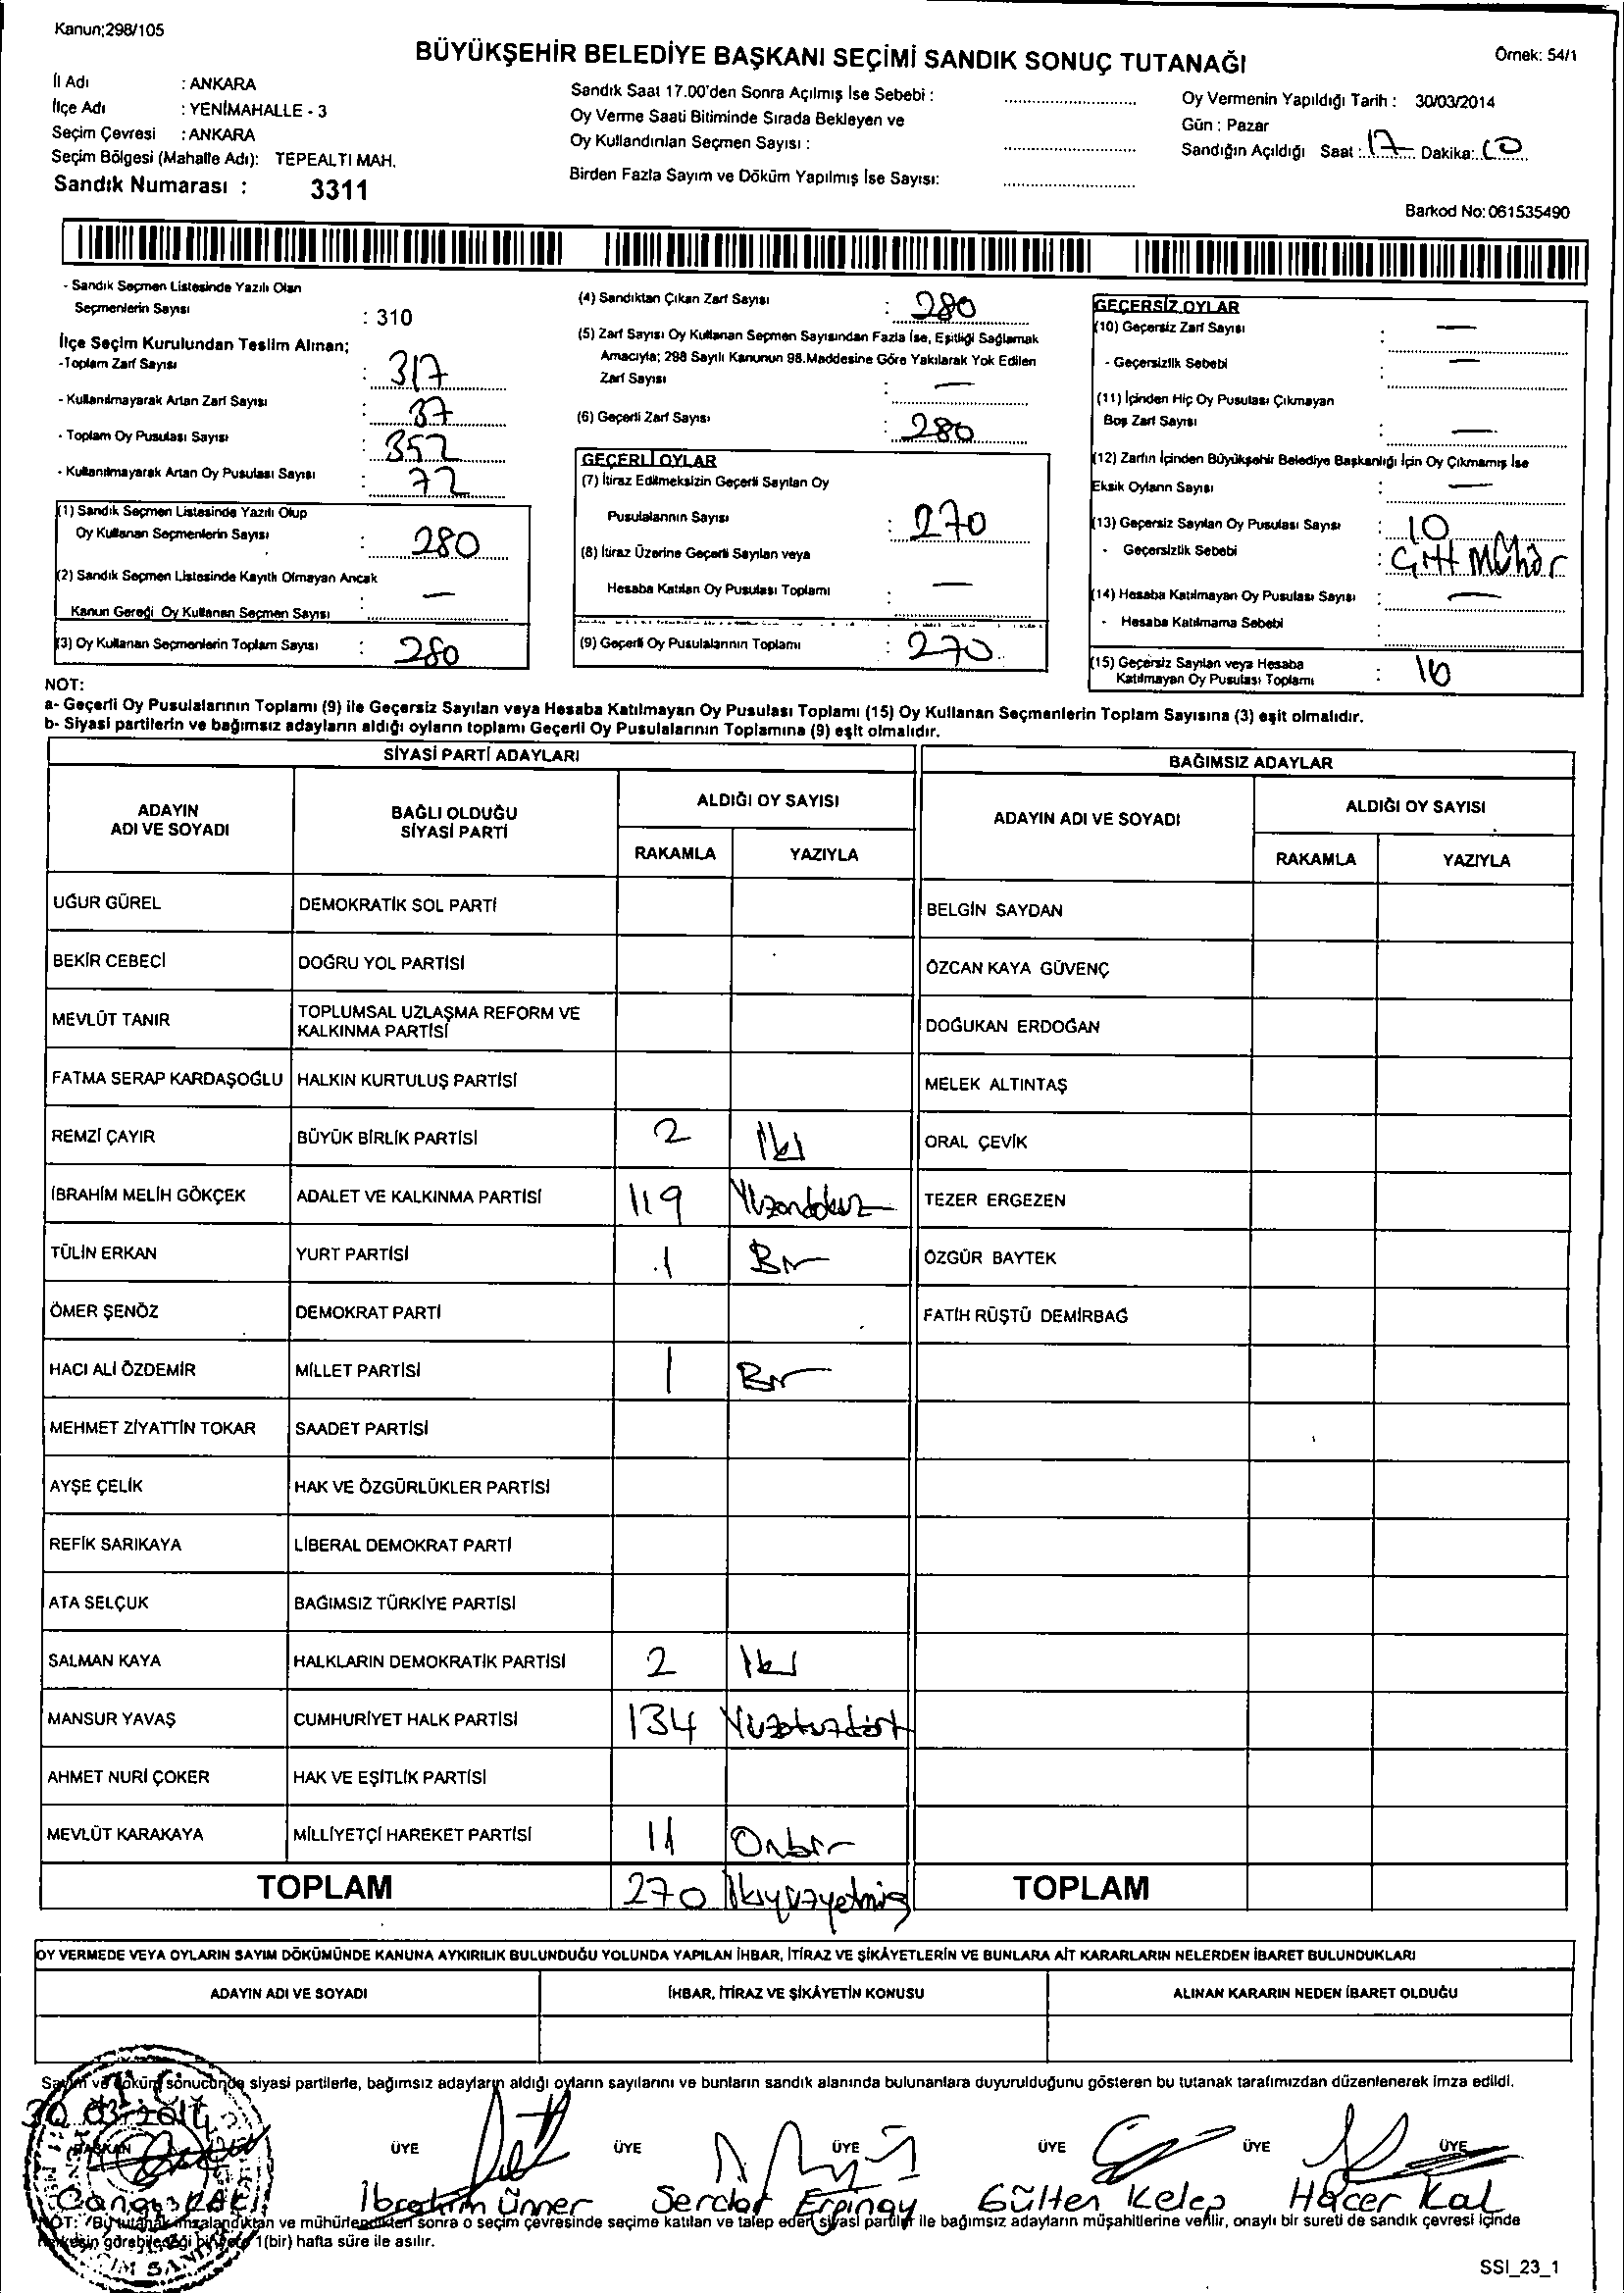 Kanun;298/105
BÜYÜKŞEHİR BELEDİYE BAŞKANI SEÇİMİ SANDIK SONUÇ TUTANAĞI
Örnek: 54/1
İl Adı : ANKARA
İlçe Adı : YENİMAHALLE - 3
Seçim Çevresi : ANKARA
Seçim Bölgesi (Mahalle Adı): TEPEALTI MAH.
Sandık Numarası : 3311
Sandık Saat 17.00'den Sonra Açılmış İse Sebebi :
Oy Verme Saati Bitiminde Sırada Bekleyen ve
Oy Kullandırılan Seçmen Sayısı :
Birden Fazla Sayım ve Döküm Yapılmış İse Sayısı:
Oy Vermenin Yapıldığı Tarih : 30/03/2014
Gün : Pazar
Sandığın Açıldığı Saat : 17 Dakika: 10
Barkod No: 061535490
- Sandık Seçmen Listesinde Yazılı Olan
Seçmenlerin Sayısı : 310
İlçe Seçim Kurulundan Teslim Alınan;
-Toplam Zarf Sayısı : 317
- Kullanılmayarak Artan Zarf Sayısı : 37
- Toplam Oy Pusulası Sayısı : 352
- Kullanılmayarak Artan Oy Pusulası Sayısı : 72
(1) Sandık Seçmen Listesinde Yazılı Olup
Oy Kullanan Seçmenlerin Sayısı : 280
(2) Sandık Seçmen Listesinde Kayıtlı Olmayan Ancak
Kanun Gereği Oy Kullanan Seçmen Sayısı : —
(3) Oy Kullanan Seçmenlerin Toplam Sayısı : 280
(4) Sandıktan Çıkan Zarf Sayısı : 280
(5) Zarf Sayısı Oy Kullanan Seçmen Sayısından Fazla İse, Eşitliği Sağlamak
Amacıyla; 298 Sayılı Kanunun 98.Maddesine Göre Yakılarak Yok Edilen
Zarf Sayısı : —
(6) Geçerli Zarf Sayısı : 280
GEÇERLİ OYLAR
(7) İtiraz Edilmeksizin Geçerli Sayılan Oy
Pusulalarının Sayısı : 270
(8) İtiraz Üzerine Geçerli Sayılan veya
Hesaba Katılan Oy Pusulası Toplamı : —
(9) Geçerli Oy Pusulalarının Toplamı : 270
GEÇERSİZ OYLAR
(10) Geçersiz Zarf Sayısı : —
- Geçersizlik Sebebi : —
(11) İçinden Hiç Oy Pusulası Çıkmayan
Boş Zarf Sayısı : —
(12) Zarfın İçinden Büyükşehir Belediye Başkanlığı İçin Oy Çıkmamış İse
Eksik Oyların Sayısı : —
(13) Geçersiz Sayılan Oy Pusulası Sayısı : 10
- Geçersizlik Sebebi : Çift Mühür
(14) Hesaba Katılmayan Oy Pusulası Sayısı : —
- Hesaba Katılmama Sebebi :
(15) Geçersiz Sayılan veya Hesaba
Katılmayan Oy Pusulası Toplamı : 10
NOT:
a- Geçerli Oy Pusulalarının Toplamı (9) ile Geçersiz Sayılan veya Hesaba Katılmayan Oy Pusulası Toplamı (15) Oy Kullanan Seçmenlerin Toplam Sayısına (3) eşit olmalıdır.
b- Siyasi partilerin ve bağımsız adayların aldığı oyların toplamı Geçerli Oy Pusulalarının Toplamına (9) eşit olmalıdır.
SİYASİ PARTİ ADAYLARI
BAĞIMSIZ ADAYLAR
ADAYIN ADI VE SOYADI
BAĞLI OLDUĞU SİYASİ PARTİ
ALDIĞI OY SAYISI
RAKAMLA YAZIYLA
ADAYIN ADI VE SOYADI
ALDIĞI OY SAYISI
RAKAMLA YAZIYLA
UĞUR GÜREL DEMOKRATİK SOL PARTİ BELGİN SAYDAN
BEKİR CEBECİ DOĞRU YOL PARTİSİ ÖZCAN KAYA GÜVENÇ
MEVLÜT TANIR TOPLUMSAL UZLAŞMA REFORM VE KALKINMA PARTİSİ DOĞUKAN ERDOĞAN
FATMA SERAP KARDAŞOĞLU HALKIN KURTULUŞ PARTİSİ MELEK ALTINTAŞ
REMZİ ÇAYIR BÜYÜK BİRLİK PARTİSİ 2 İki ORAL ÇEVİK
İBRAHİM MELİH GÖKÇEK ADALET VE KALKINMA PARTİSİ 119 Yüzondokuz TEZER ERGEZEN
TÜLİN ERKAN YURT PARTİSİ 1 Bir ÖZGÜR BAYTEK
ÖMER ŞENÖZ DEMOKRAT PARTİ FATİH RÜŞTÜ DEMİRBAĞ
HACI ALİ ÖZDEMİR MİLLET PARTİSİ 1 Bir
MEHMET ZİYATTİN TOKAR SAADET PARTİSİ
AYŞE ÇELİK HAK VE ÖZGÜRLÜKLER PARTİSİ
REFİK SARIKAYA LİBERAL DEMOKRAT PARTİ
ATA SELÇUK BAĞIMSIZ TÜRKİYE PARTİSİ
SALMAN KAYA HALKLARIN DEMOKRATİK PARTİSİ 2 İki
MANSUR YAVAŞ CUMHURİYET HALK PARTİSİ 134 Yüzotuzdört
AHMET NURİ ÇOKER HAK VE EŞİTLİK PARTİSİ
MEVLÜT KARAKAYA MİLLİYETÇİ HAREKET PARTİSİ 11 Onbir
TOPLAM 270 İkiyüzyetmiş TOPLAM
OY VERMEDE VEYA OYLARIN SAYIM DÖKÜMÜNDE KANUNA AYKIRILIK BULUNDUĞU YOLUNDA YAPILAN İHBAR, İTİRAZ VE ŞİKÂYETLERİN VE BUNLARA AİT KARARLARIN NELERDEN İBARET BULUNDUKLARI
ADAYIN ADI VE SOYADI İHBAR, İTİRAZ VE ŞİKÂYETİN KONUSU ALINAN KARARIN NEDEN İBARET OLDUĞU
Sayım ve döküm sonucunda siyasi partilerle, bağımsız adayların aldığı oyların sayılarını ve bunların sandık alanında bulunanlara duyurulduğunu gösteren bu tutanak tarafımızdan düzenlenerek imza edildi.
30.03.2014
BAŞKAN ÜYE ÜYE ÜYE ÜYE ÜYE ÜYE
İbrahim Ünner Serdar Erpinay Gülten Keleş Hacer Kal
NOT: Bu tutanak imzalandıktan ve mühürlendikten sonra o seçim çevresinde seçime katılan ve talep eden siyasi partiler ile bağımsız adayların müşahitlerine verilir, onaylı bir sureti de sandık çevresi içinde
herkesin görebileceği bir yere 1(bir) hafta süre ile asılır.
SSI_23_1